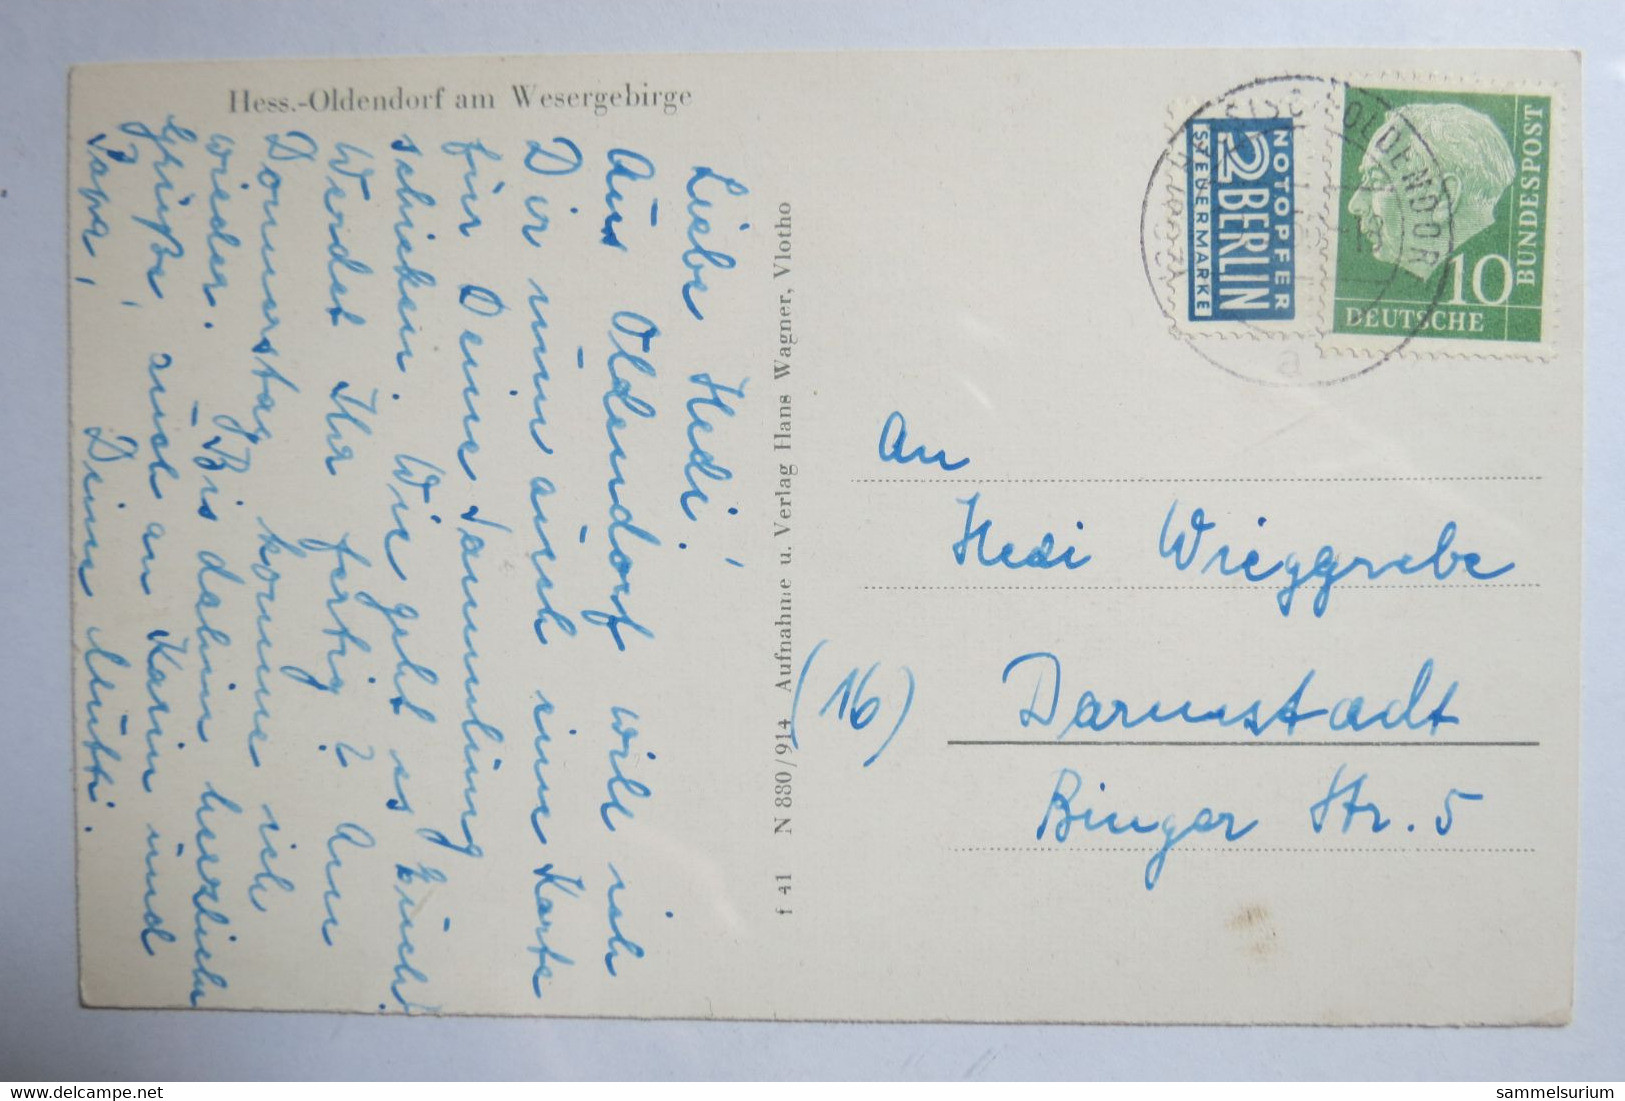 Hess.-Oldendorf am Wesergebirge
Liebe Hedi!
Aus Oldendorf will ich
Dir nun auch eine Karte
für Deine Sammlung
schicken. Wie geht es Euch?
Werdet Ihr fertig? Am
Donnerstag komme ich
wieder. – Bis dahin herzliche
Grüße, auch an Karin und
Papa,
Deine Mutti.
f 41 N 880/914 Aufnahme u. Verlag Hans Wagner, Vlotho
NOTOPFER
2 BERLIN
STEUERMARKE
OLDENDORF
a
10
DEUTSCHE
BUNDESPOST
An
Hedi Wieggrebe
(16) Darmstadt
Binger Str. 5
sammelsurium (c) delcampe.net